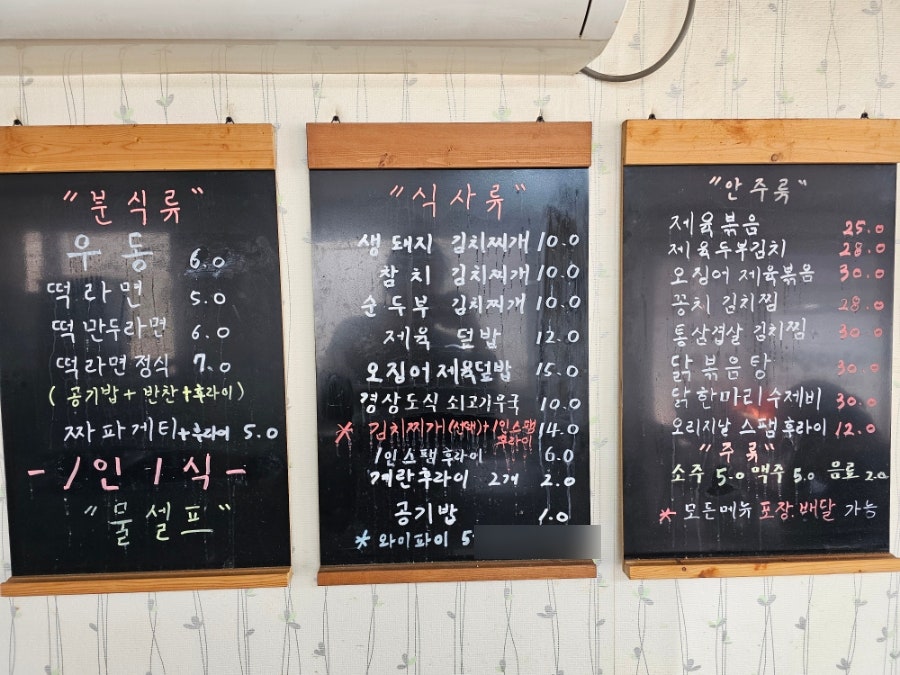 "분식류"
우동 6.0
떡라면 5.0
떡만두라면 6.0
떡라면정식 7.0
(공기밥+반찬+후라이)
짜파게티+후라이 5.0
-1인1식-
"물셀프"
"식사류"
생돼지 김치찌개 10.0
참치 김치찌개 10.0
순두부 김치찌개 10.0
제육 덮밥 12.0
오징어제육덮밥 15.0
경상도식 쇠고기우국 10.0
* 김치찌개(선택)+1인스팸후라이 14.0
1인스팸후라이 6.0
계란후라이 2개 2.0
공기밥 1.0
* 와이파이 5
"안주류"
제육볶음 25.0
제육두부김치 28.0
오징어제육볶음 30.0
꽁치김치찜 28.0
통삼겹살 김치찜 30.0
닭볶음탕 30.0
닭한마리수제비 30.0
오리지날 스팸후라이 12.0
"주류"
소주 5.0 맥주 5.0 음료 2.0
* 모든메뉴 포장.배달 가능